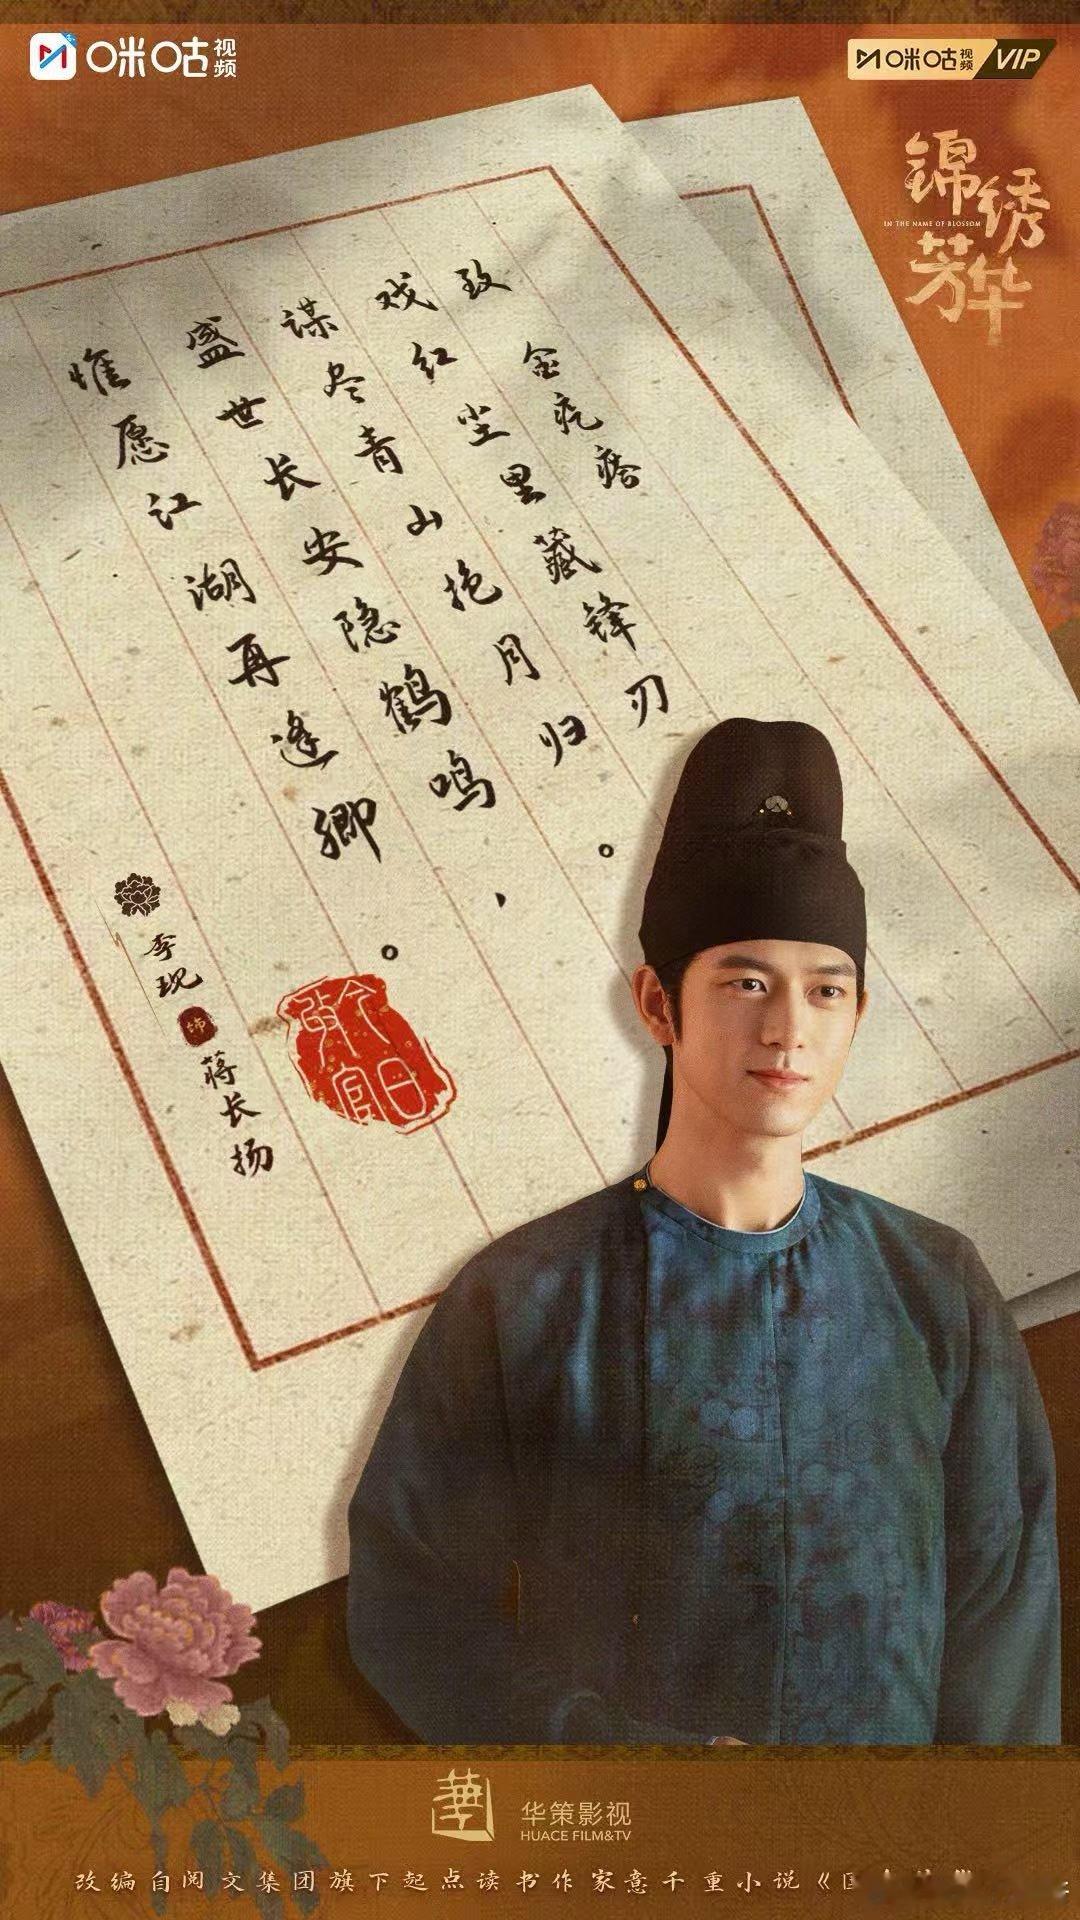 咪咕视频
咪咕视频 VIP
锦绣芳华
IN THE NAME OF BLOSSOM
致金疙瘩
戏红尘里藏锋刃
谋尽青山抱月归。
盛世长安隐鹤鸣、
惟愿江湖再逢卿。
李现 饰 蒋长扬
今日
華
华策影视
HUACE FILM&TV
改编自阅文集团旗下起点读书作家意千重小说《